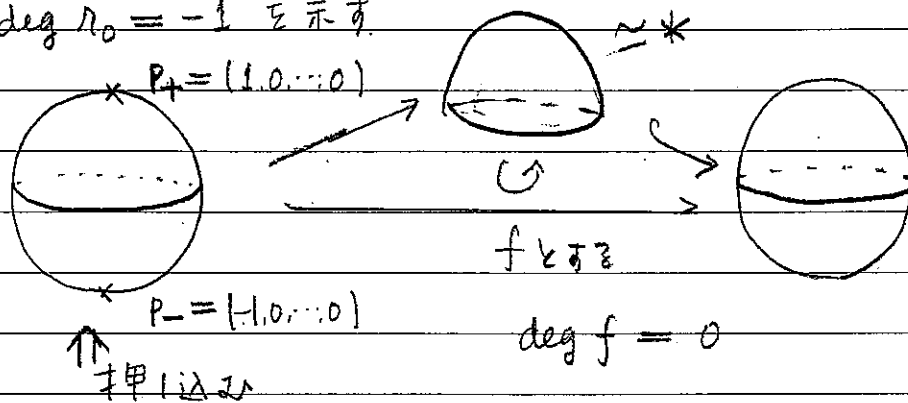 deg r₀ = -1 を示す.
P₊ = (1,0,…,0)
≃ *
fとする
P₋ = (-1,0,…,0)
deg f = 0
押し込み